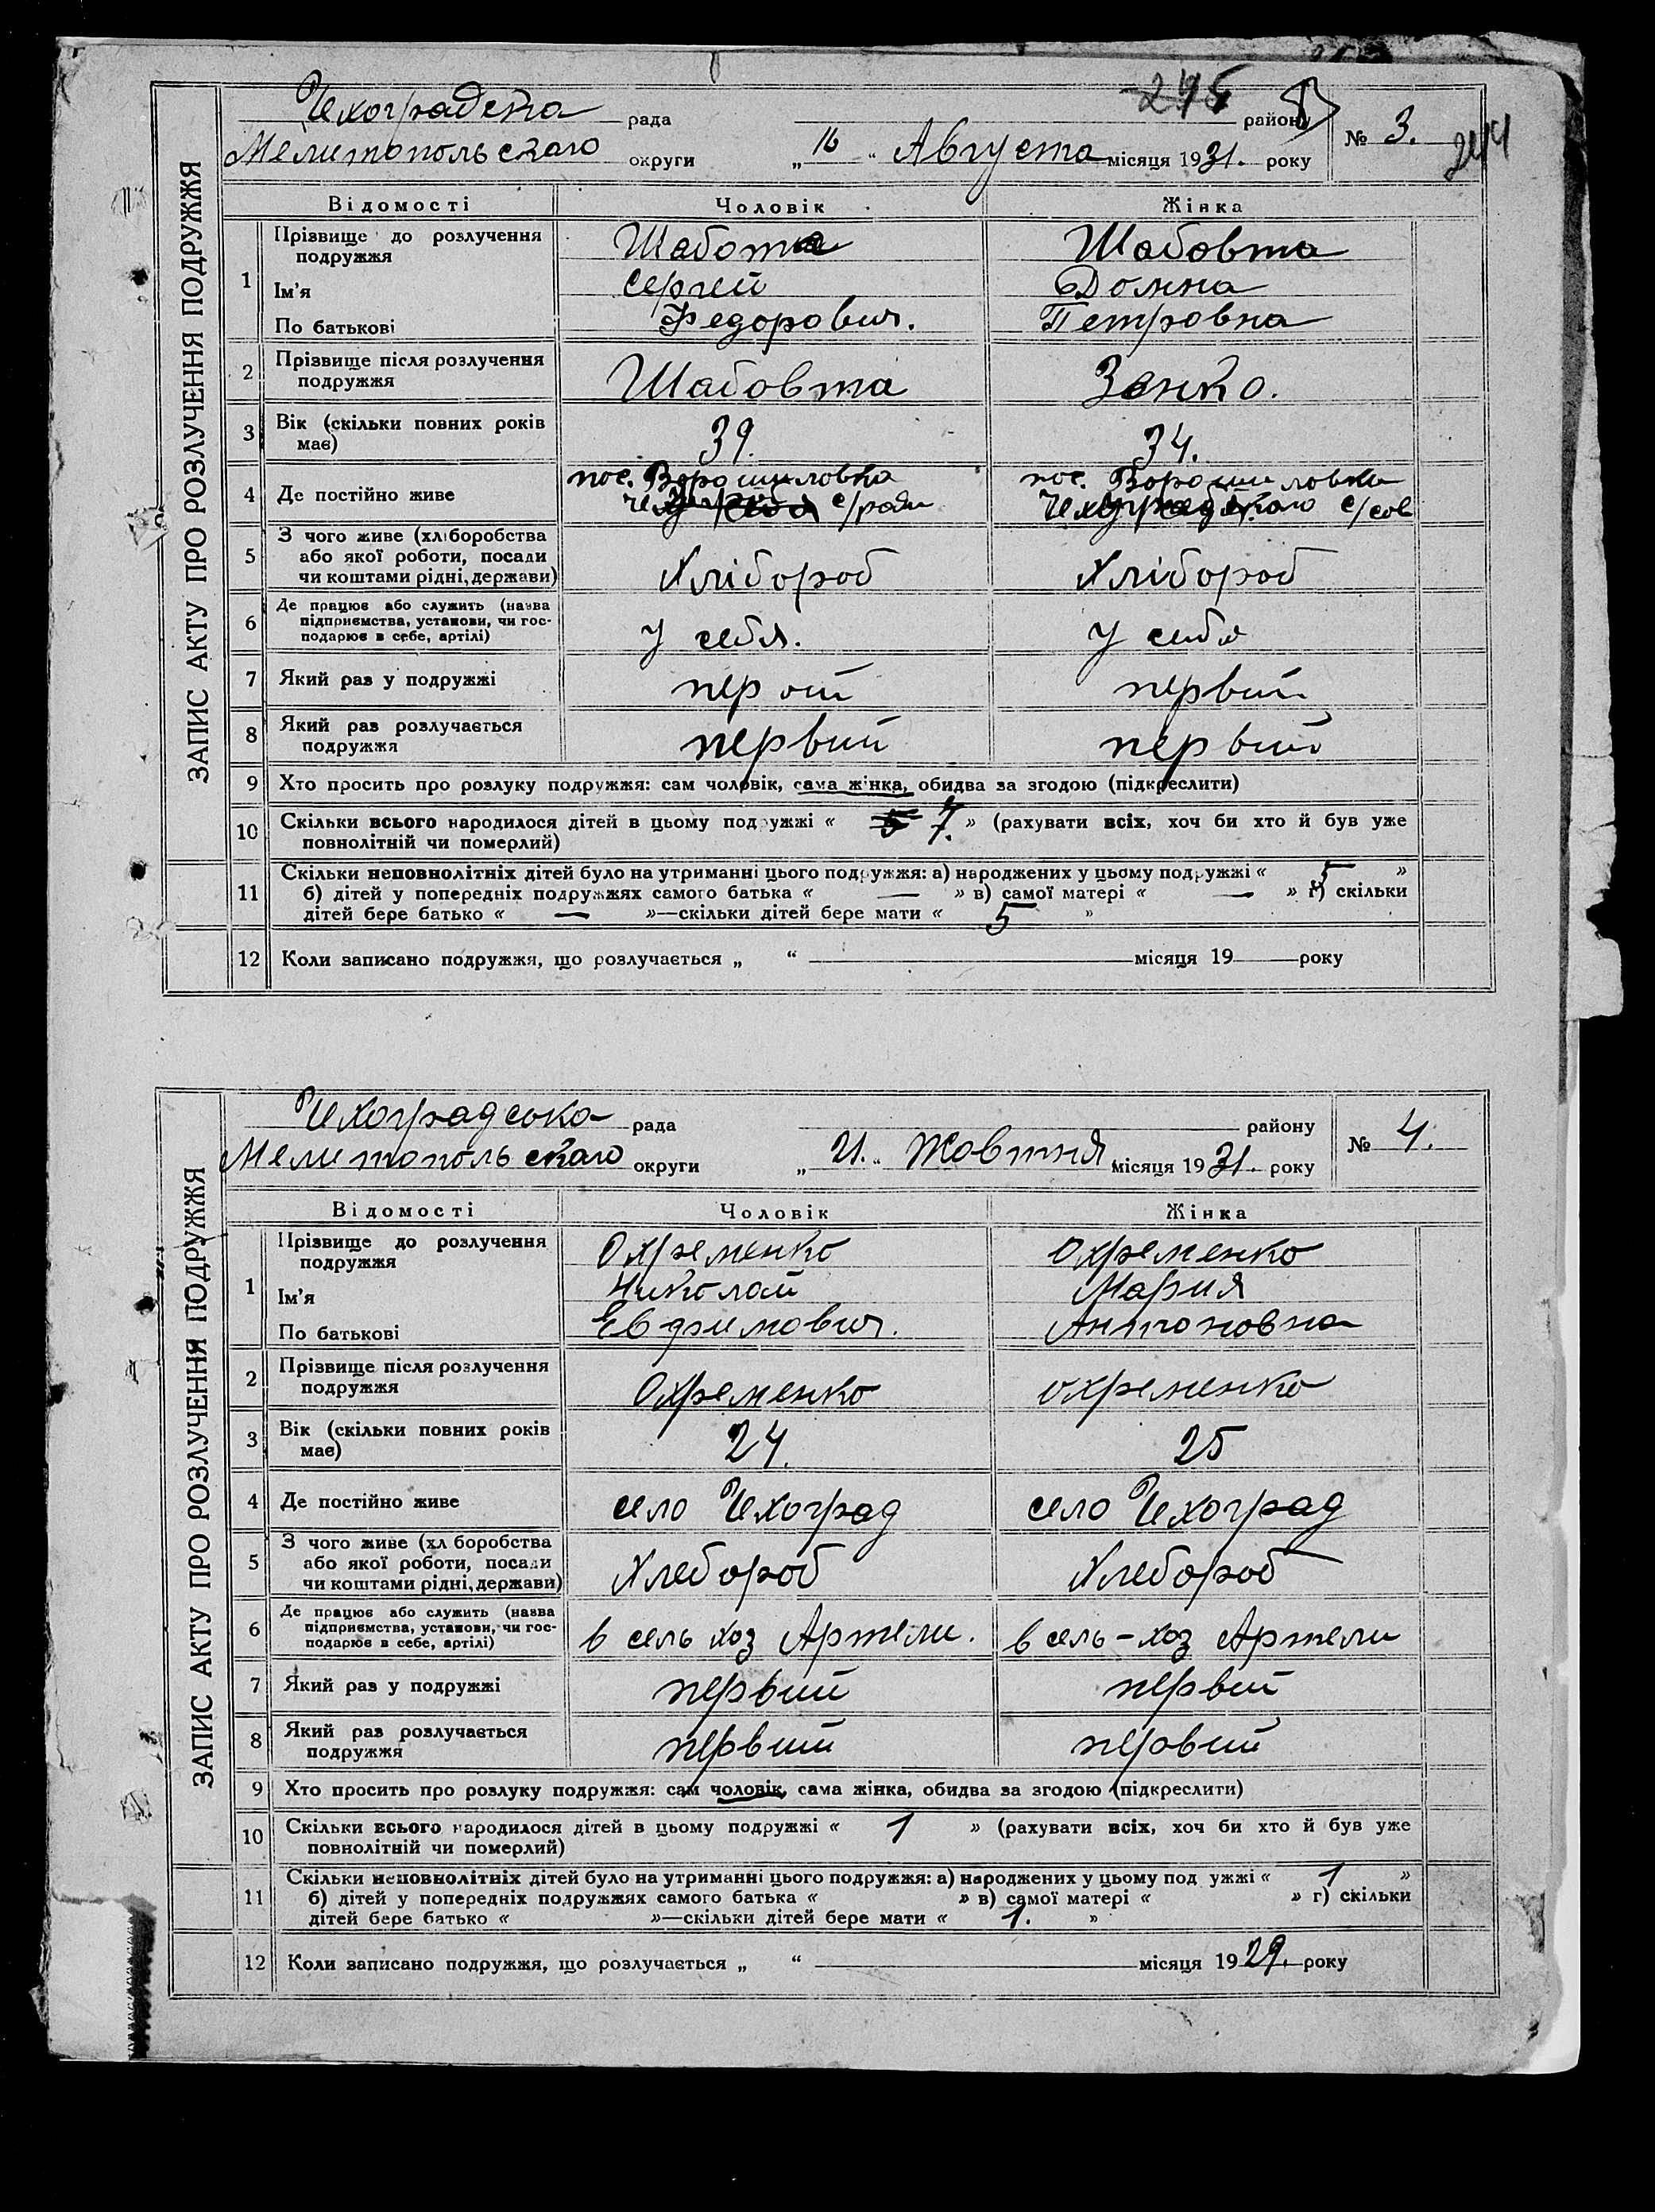 245
244
ЗАПИС АКТУ ПРО РОЗЛУЧЕННЯ ПОДРУЖЖЯ
рада району № 3.
Мелитопольскаго округи „ 16 “ Августа місяця 1931. року
Відомості Чоловік Жінка
1 Прізвище до розлучення подружжя Шабовта
Ім’я Сергей Домна
По батькові Федорович. Петровна
2 Прізвище після розлучення подружжя Шабовта Зенко.
3 Вік (скільки повних років має) 39. 34.
4 Де постійно живе пос. Ворошиловка с/рады пос. Ворошиловка с/сов
5 З чого живе (хліборобства або якої роботи, посади чи коштами рідні, держави) Хлібороб Хлібороб
6 Де працює або служить (назва підприємства, установи, чи господарює в себе, артілі) У себя. У себя
7 Який раз у подружжі первий
8 Який раз розлучається подружжя первий первий
9 Хто просить про розлуку подружжя: сам чоловік, сама жінка, обидва за згодою (підкреслити)
10 Скільки всього народилося дітей в цьому подружжі « 7. » (рахувати всіх, хоч би хто й був уже
повнолітній чи померлий)
11 Скільки неповнолітніх дітей було на утриманні цього подружжя: а) народжених у цьому подружжі « 5 »
б) дітей у попередніх подружжях самого батька « — » в) самої матері « — » г) скільки
дітей бере батько « — »—скільки дітей бере мати « 5 »
12 Коли записано подружжя, що розлучається „ “ місяця 19 року
ЗАПИС АКТУ ПРО РОЗЛУЧЕННЯ ПОДРУЖЖЯ
Чехоградсько рада району № 4.
Мелитопольскаго округи „ 21. “ Жовтня місяця 1931. року
Відомості Чоловік Жінка
1 Прізвище до розлучення подружжя Охременко Охременко
Ім’я Николай Мария
По батькові Евфимович. Антоновна
2 Прізвище після розлучення подружжя Охременко Охременко
3 Вік (скільки повних років має) 24. 25
4 Де постійно живе село Чехоград село Чехоград
5 З чого живе (хліборобства або якої роботи, посади чи коштами рідні, держави) Хлебороб Хлебороб
6 Де працює або служить (назва підприємства, установи, чи господарює в себе, артілі) в сель хоз Артели. в сель-хоз Артели
7 Який раз у подружжі первий первий
8 Який раз розлучається подружжя первий первий
9 Хто просить про розлуку подружжя: сам чоловік, сама жінка, обидва за згодою (підкреслити)
10 Скільки всього народилося дітей в цьому подружжі « 1 » (рахувати всіх, хоч би хто й був уже
повнолітній чи померлий)
11 Скільки неповнолітніх дітей було на утриманні цього подружжя: а) народжених у цьому подружжі « 1 »
б) дітей у попередніх подружжях самого батька « » в) самої матері « » г) скільки
дітей бере батько « »—скільки дітей бере мати « 1. »
12 Коли записано подружжя, що розлучається „ “ місяця 1929. року